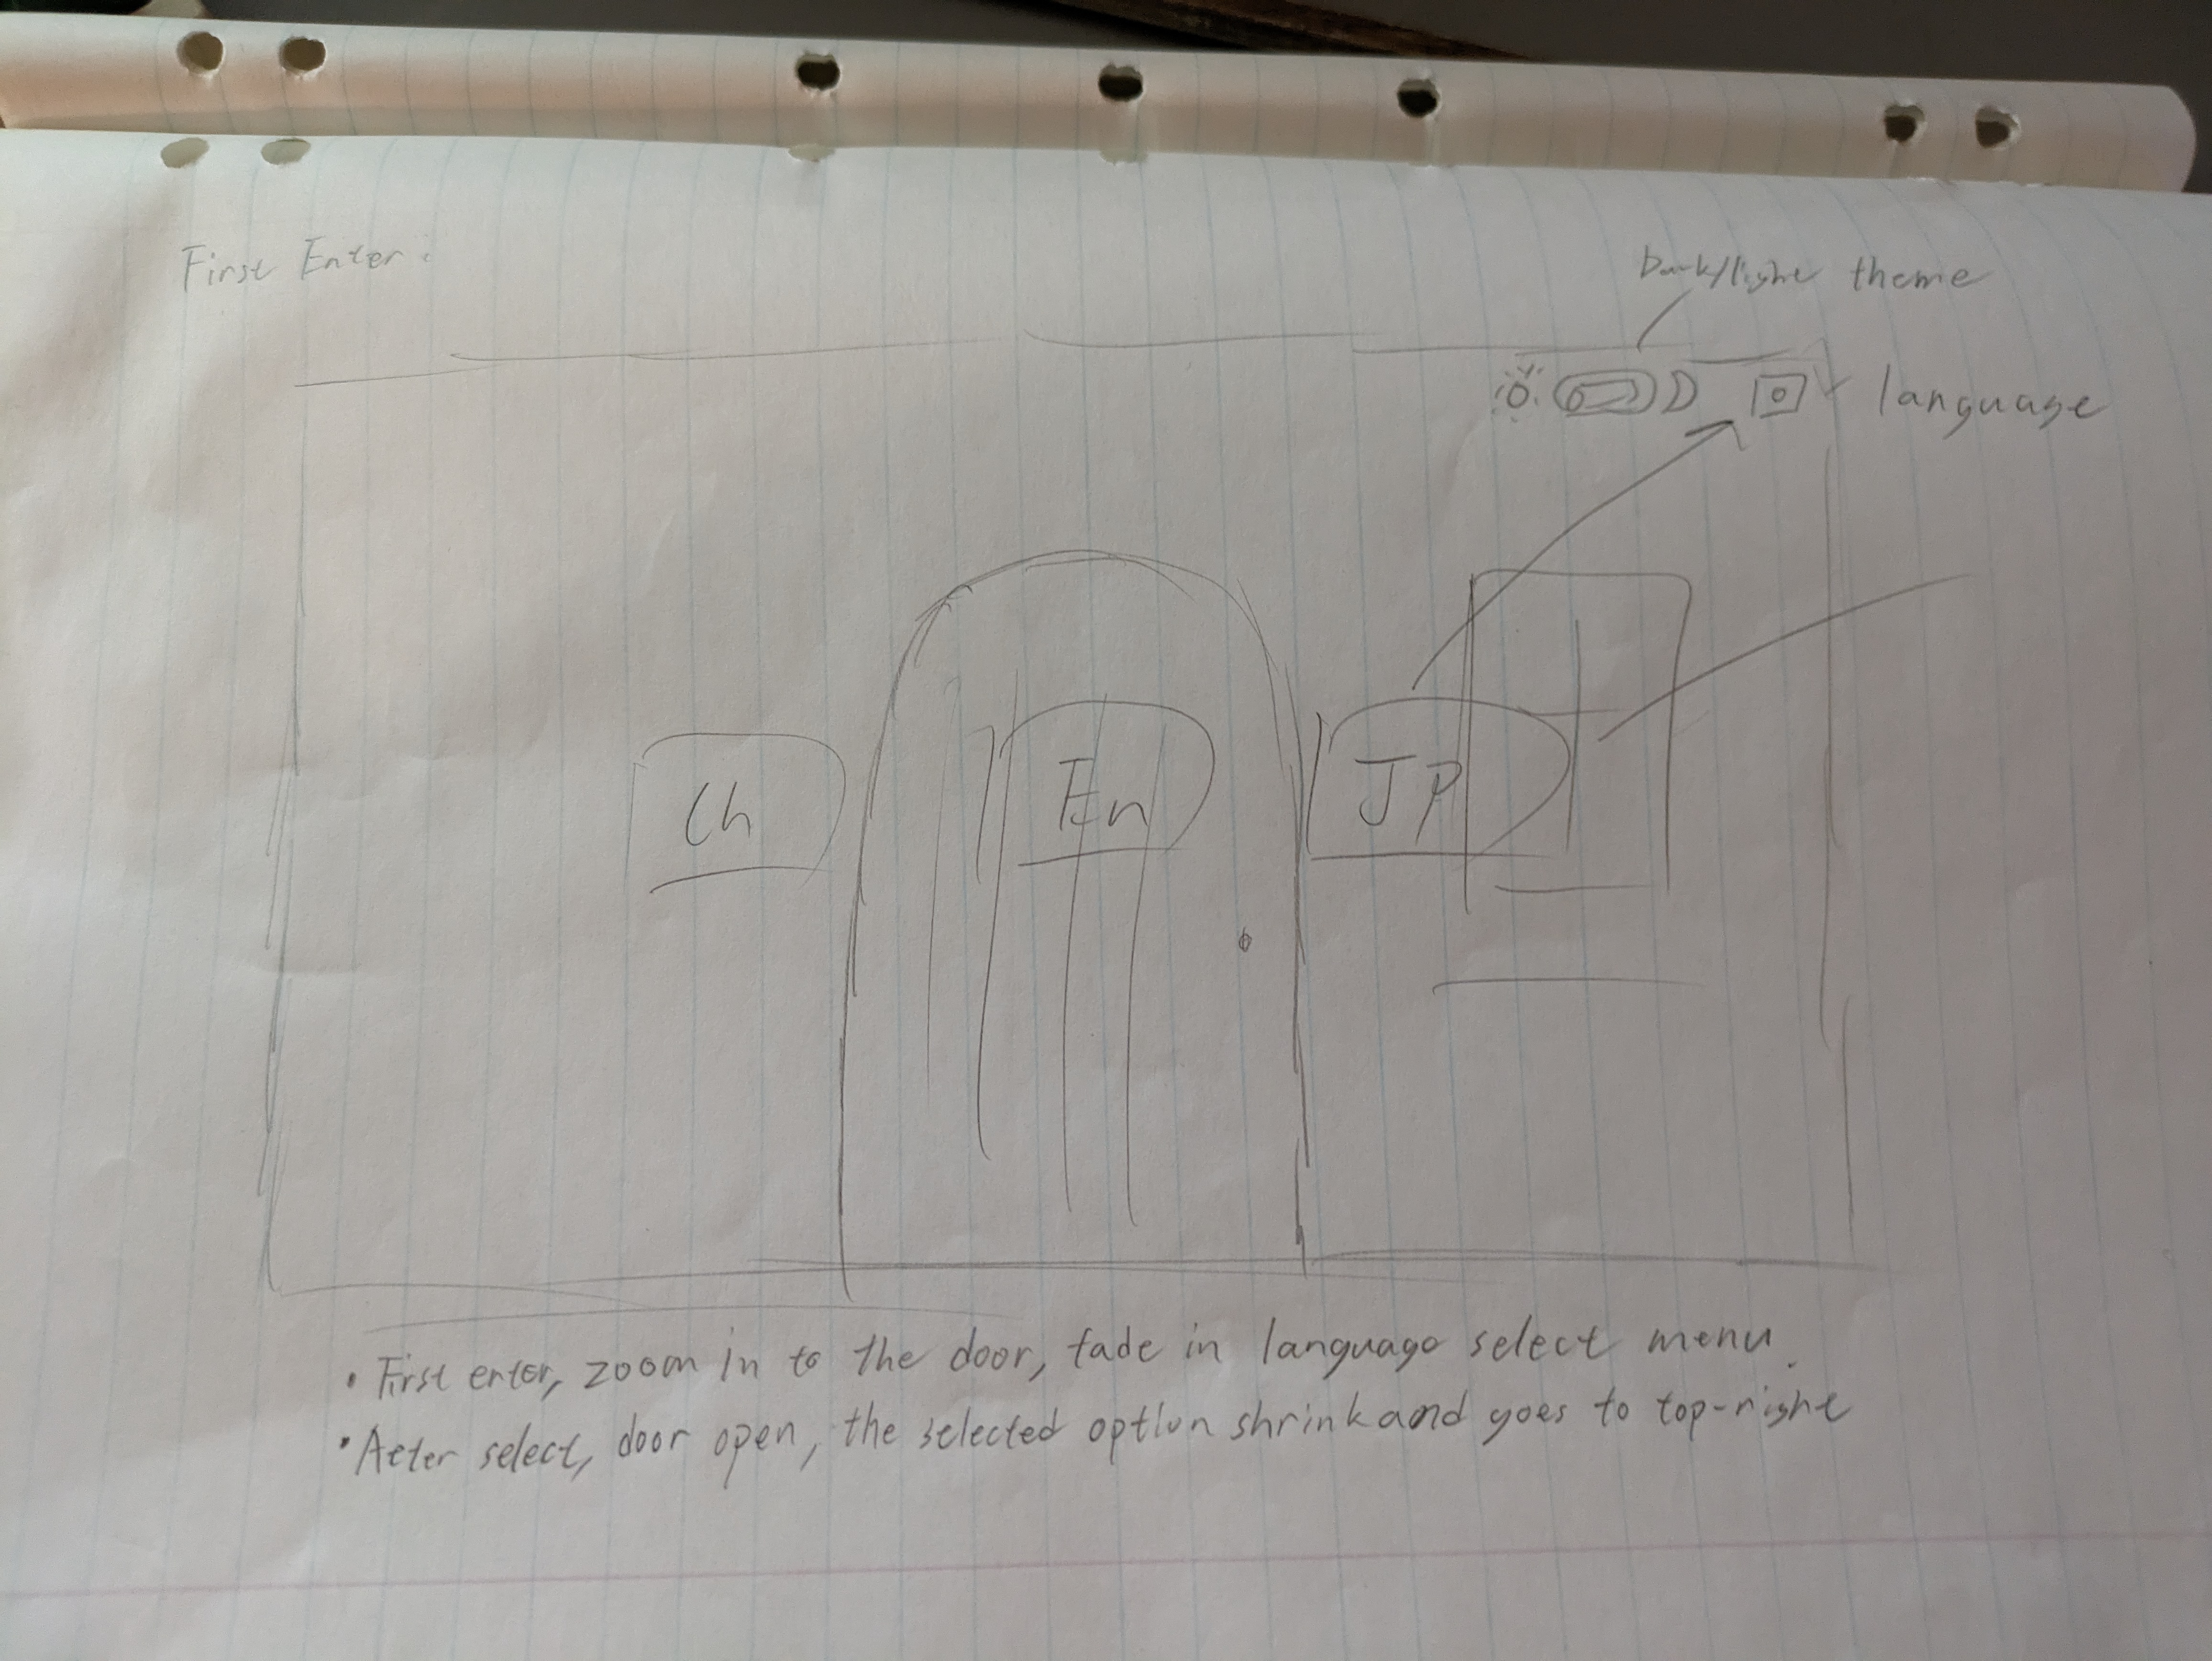 First Enter:
Dark/light theme
language
Ch
En
JP
• First enter, zoom in to the door, fade in language select menu.
• After select, door open, the selected option shrink and goes to top-right